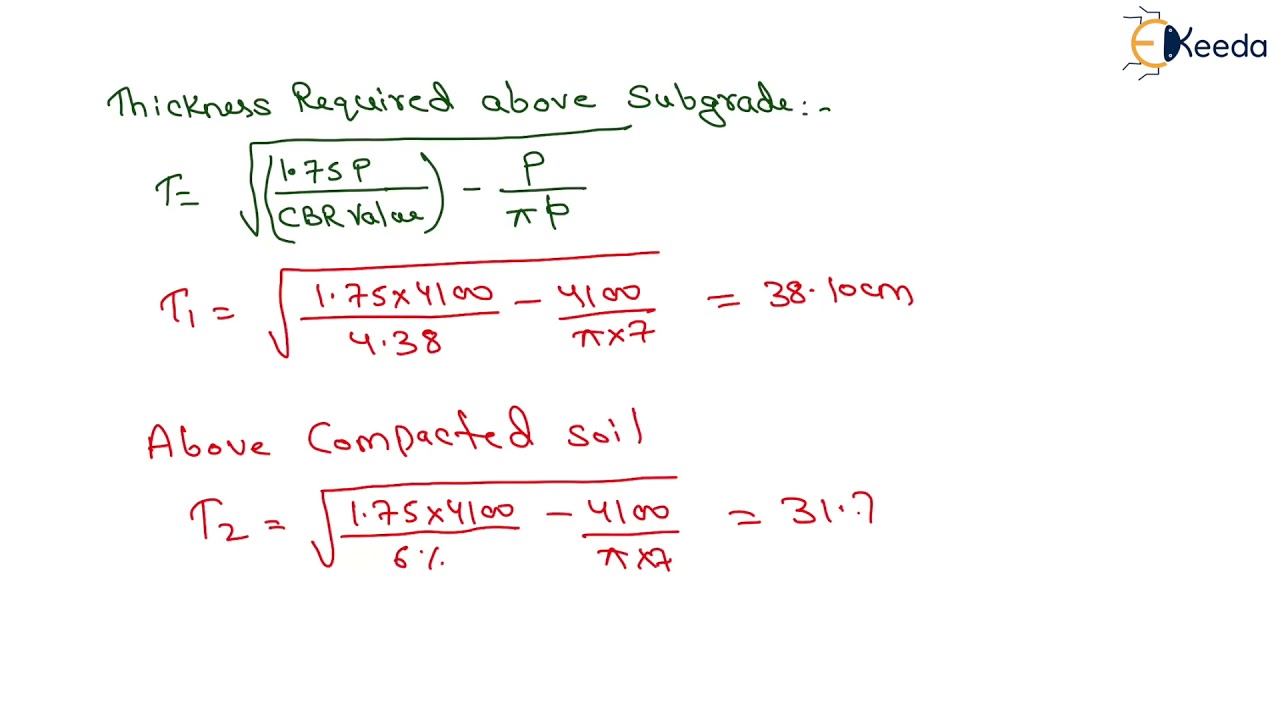 EKeeda
Thickness Required above Subgrade:-
T= √((1.75P/CBR Value) - P/πp)
T1 = √(1.75x4100/4.38 - 4100/πx7) = 38.10cm
Above Compacted soil
T2 = √(1.75x4100/6% - 4100/πx7) = 31.7